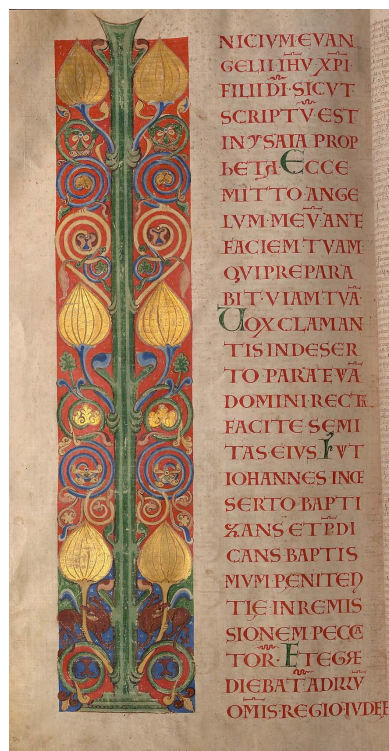 NICIUM·EVAN
GELII IHV XPI
FILII DI·SICVT
SCRIPTV·EST
IN YSAIA PROP
hETA·ECCE
MITTO ANGE
LVM·MEV̄·ANTE
FACIEM TVAM
QVI PREPARA
BIT·VIAM TVĀ·
VOX CLAMAN
TIS IN DESER
TO PARATE VIĀ
DOMINI·RECTA
FACITE SEMI
TAS EIVS·FVT
IOHANNES IN DE
SERTO·BAPTI
ZANS ET P̄DI
CANS BAPTIS
MVM PENITEN
TIE IN REMIS
SIONEM PECCA
TOR̄·ET EGRE
DIEBAT̄ AD ILLV̄
OM̄IS·REGIO·IVDEE